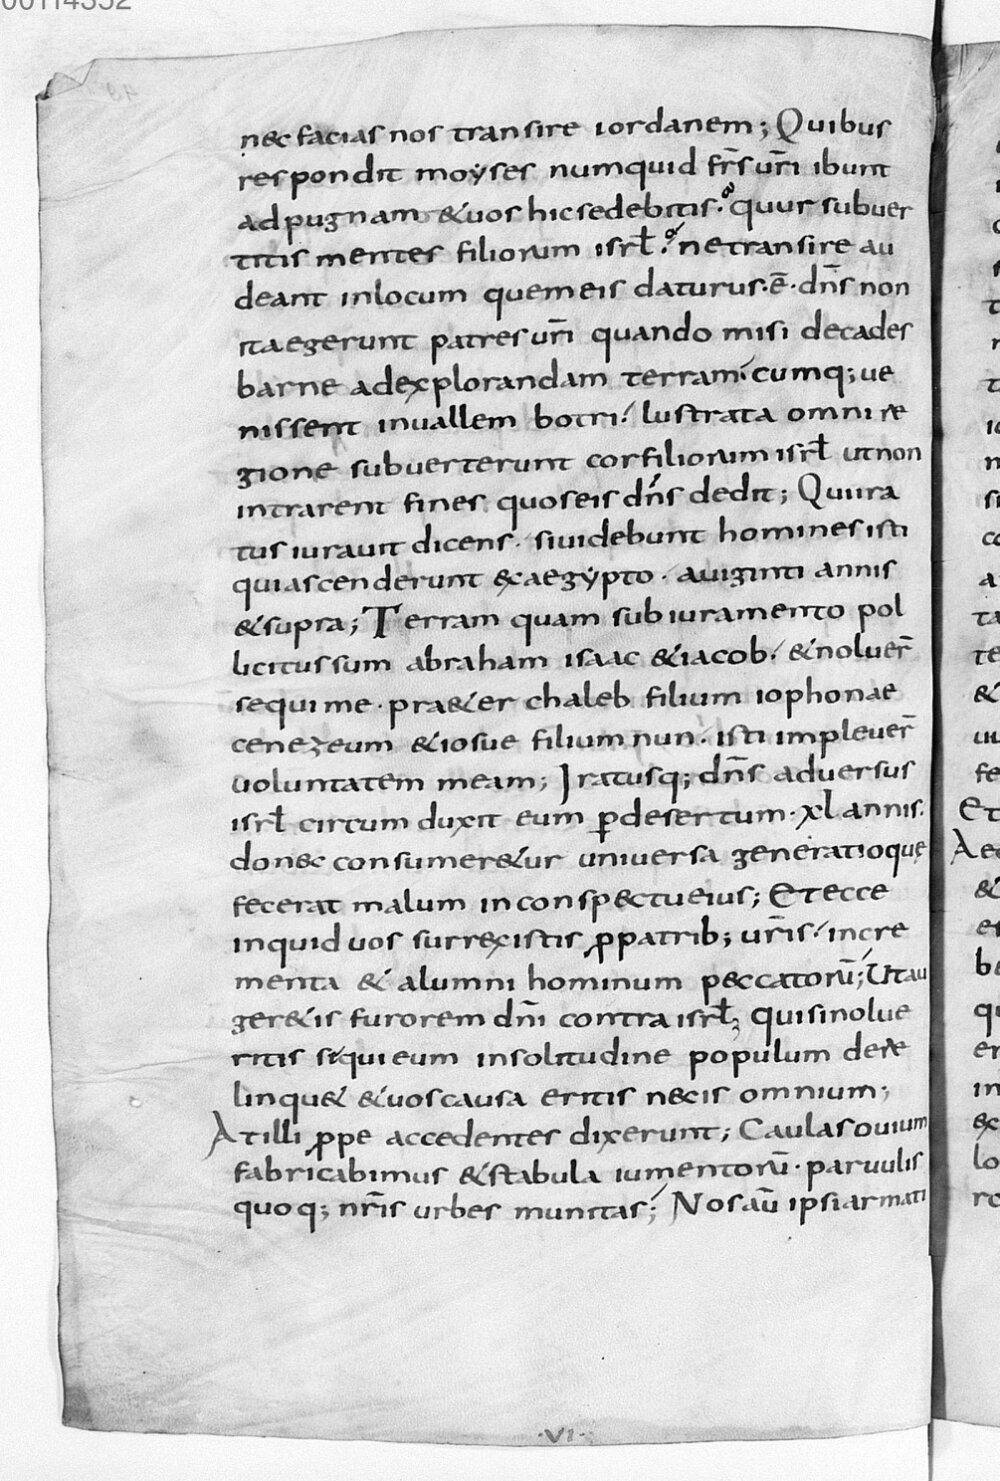 00114352
nec facias nos transire iordanem; Quibus
respondit moyses numquid fr̄s ur̄i ibunt
ad pugnam & uos hic sedebitis. quur subuer
titis mentes filiorum isrl̄. ne transire au
deant in locum quem eis daturus. ē. dn̄s non
ita egerunt patres ur̄i quando misi decades
barne ad explorandam terram. cumq; ue
nissent in uallem botri. lustrata omni re
gione subuerterunt cor filiorum isrl̄ ut non
intrarent fines quos eis dn̄s dedit; Qui ira
tus iurauit dicens. si uidebunt homines isti
qui ascenderunt ex aegypto. a uiginti annis
& supra; Terram quam sub iuramento pol
licitus sum abraham isaac & iacob. & noluer̄
sequi me. pra&er chaleb filium iophonae
cenezeum & iosue filium nun. isti impleuer̄
uoluntatem meam; Iratusq; dn̄s aduersus
isrl̄ circum duxit eum ꝑ desertum. xl annis.
donec consumer&ur uniuersa generatio que
fecerat malum in conspectu eius; Et ecce
inquid uos surrexistis ꝓ patrib; ur̄is. incre
menta & alumni hominum peccatorū; Ut au
ger&is furorem dn̄i contra isrl̄; qui si nolue
ritis sequi eum in solitudine populum dere
linqu& & uos causa eritis necis omnium;
At illi ꝓpe accedentes dixerunt; Caulas ouium
fabricabimus & stabula iumentorū. paruulis
quoq; nr̄is urbes munitas; Nos aū ipsi armati
·VI·